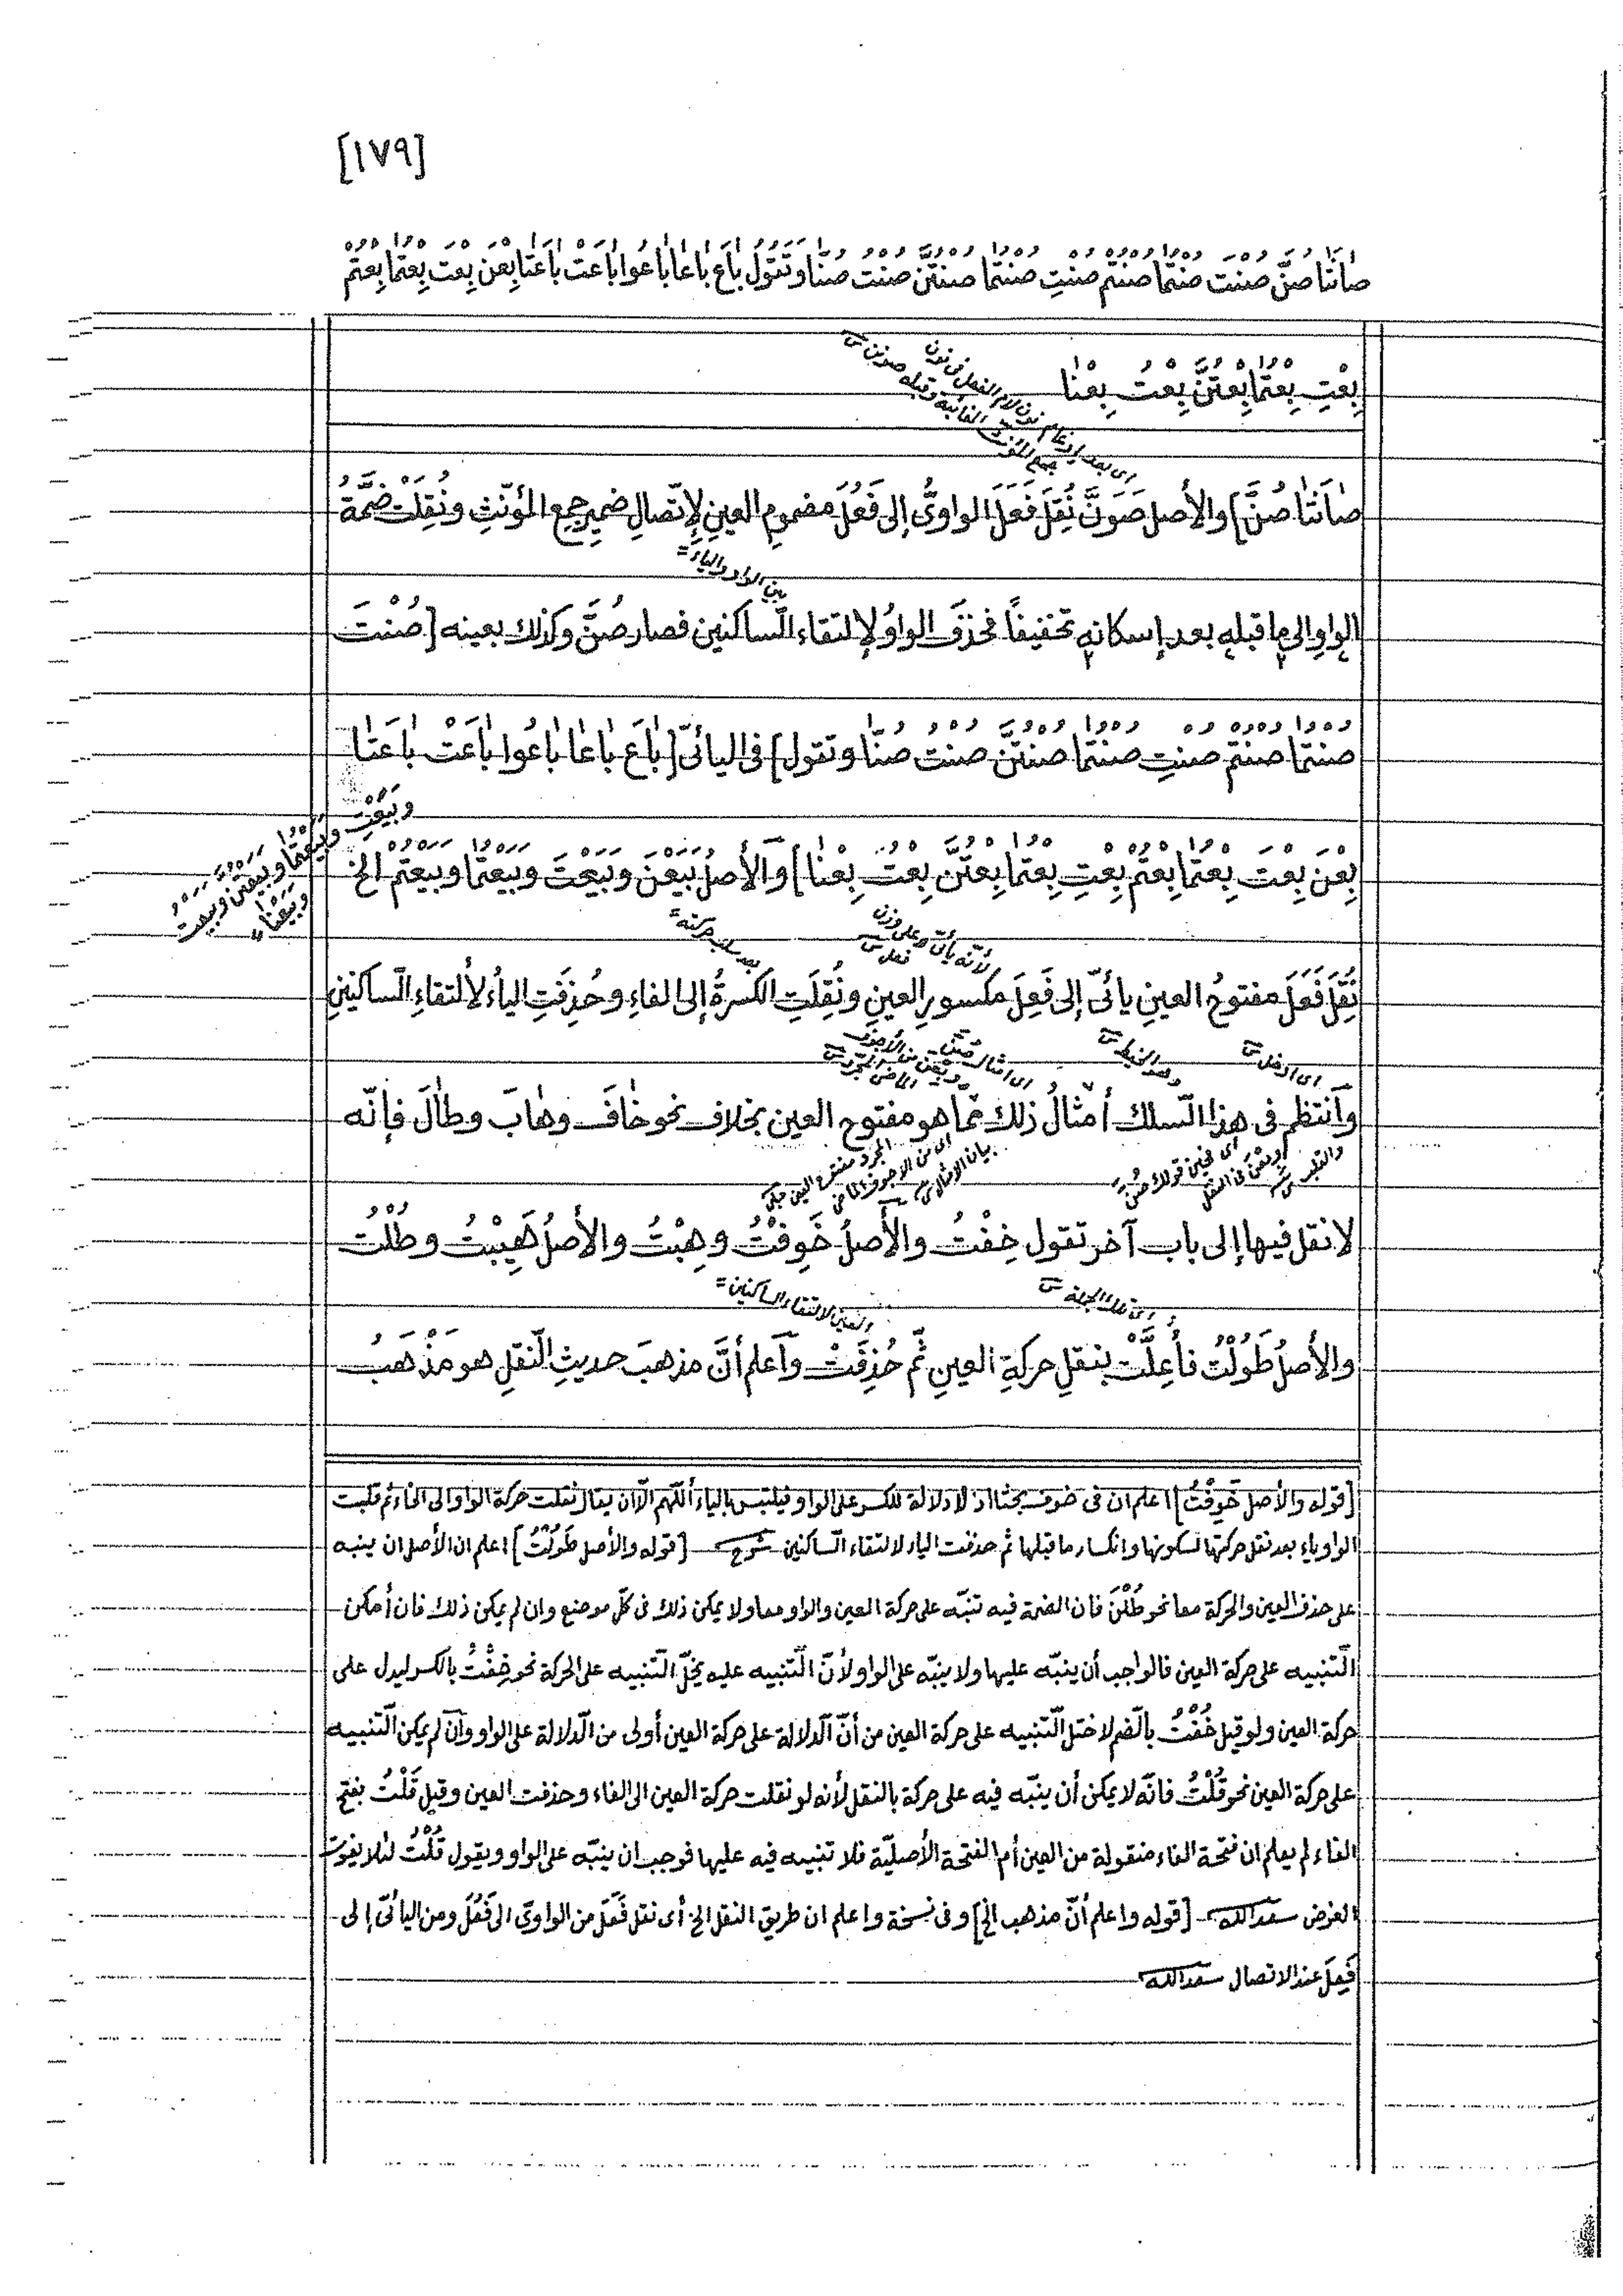 [١٧٩]
صٰانَتٰا صُنَّ صُنْتَ صُنْتُمٰا صُنْتُمْ صُنْتِ صُنْتُمٰا صُنْتُنَّ صُنْتُ صُنّٰا وَتَقُولُ بٰاعَ بٰاعٰا بٰاعُوا بٰاعَتْ بٰاعَتٰا بِعْنَ بِعْتَ بِعْتُمٰا بِعْتُمْ
بِعْتِ بِعْتُمٰا بِعْتُنَّ بِعْتُ بِعْنٰا
اى بعد ادغام نون لام الفعل فى نون
جمع المؤنث الغائبة وقبله صونن
صٰانَتٰا صُنَّ] والأصل صَوَنَّ نُقِلَ فَعَلَ الواوىُّ إلى فَعُلَ مضمومِ العينِ لإتّصالِ ضميرِ جمعِ المؤنّثِ ونُقِلَتْ ضمَّةُ
بين الواو والياء
الواوِ إلى ما قبلهِ بعد إسكانهِ تخفيفًا فحُذِفَ الواوُ لإلتقاء السّاكنين فصار صُنَّ وكذلك بعينه [صُنْتَ
صُنْتُمٰا صُنْتُمْ صُنْتِ صُنْتُمٰا صُنْتُنَّ صُنْتُ صُنّٰا وتقول] فى اليائىّ [بٰاعَ بٰاعٰا بٰاعُوا بٰاعَتْ بٰاعَتٰا
بِعْنَ بِعْتَ بِعْتُمٰا بِعْتُمْ بِعْتِ بِعْتُمٰا بِعْتُنَّ بِعْتُ بِعْنٰا] والأصلُ بَيَعْنَ وبَيَعْتَ وبَيَعْتُمٰا وبَيَعْتُمْ الخ
وبَيَعْتِ وبَيَعْتُمٰا وبَيَعْتُنَّ وبَيَعْتُ
وبَيَعْنٰا
لأنّه يأتى على وزن
فعل
بعد سلب حركته
نُقِلَ فَعَلَ مفتوحُ العينِ يائىّ إلى فَعِلَ مكسورِ العينِ ونُقِلَتِ الكسرةُ إلى الفاءِ وحُذِفَتِ الياءُ لألتقاءِ السّاكنينِ
اى ادخل
وهذا الخيط
اى امثال صُنّ
وبِعْنَ من الأجوف
الماضى المجرّد
وٱنتظم فى هذا السّلك أمثالُ ذلك ممّا هو مفتوح العين بخلاف نحو خٰافَ وهٰابَ وطٰالَ فإنّه
بيان الامثال
اى من الاجوف الماضى
المجرد مفتوح العين
لا نقل فيها إلى باب آخر تقول خِفْتُ والأصلُ خَوِفْتُ وهِبْتُ والأصلُ هَيِبْتُ وطُلْتُ
اى تلك الجملة
العين لالتقاء الساكنين
والأصلُ طَوُلْتُ فأُعِلَّتْ بنقلِ حركةِ العينِ ثمّ حُذِفَتْ وٱعلم أنَّ مذهبَ حديثِ النّقلِ هو مَذْهَبُ
[قوله والأصل خَوِفْتُ] اعلم ان فى خوف بحثا اذ لا دلالة للكسر على الواو فيلتبس بالياء أللّهم الّا ان يقال نقلت حركة الواو الى الخاء ثم قلبت
الواو ياء بعد نقل حركتها لسكونها وانكسار ما قبلها ثم حذفت الياء لالتقاء السّاكنين شرح [قوله والأصل طَوُلْتُ] اعلم ان الأصل ان ينبه
على حذف العين والحركة معا نحو طُلْنَ فان الضمة فيه تنبّه على حركة العين والواو معا ولا يمكن ذلك فى كلّ موضع وان لم يمكن ذلك فان أمكن
التّنبيه على حركة العين فالواجب أن ينبّه عليها ولا ينبّه على الواو لأنّ التّنبيه عليه يخلّ التّنبيه على الحركة نحو خِفْتُ بالكسر ليدل على
حركة العين ولو قيل خُفْتُ بالضّم لاختل التّنبيه على حركة العين من أنّ الدّلالة على حركة العين أولى من الدّلالة على الواو وان لم يمكن التّنبيه
على حركة العين نحو قُلْتُ فانّه لا يمكن أن ينبّه فيه على حركة بالنقل لأنه لو نقلت حركة العين الى الفاء وحذفت العين وقيل قَلْتُ بفتح
الفاء لم يعلم ان فتحة الفاء منقولة من العين أم الفتحة الأصليّة فلا تنبيه فيه عليها فوجب ان ينبّه على الواو ويقول قُلْتُ لئلا يفوت
الغرض سعد الله [قوله واعلم أنّ مذهب الخ] وفى نسخة واعلم ان طريق النقل الخ أى نقل فَعَلَ من الواوىّ الى فَعُلَ ومن اليائىّ إلى
فَعِلَ عند الاتصال سعد الله